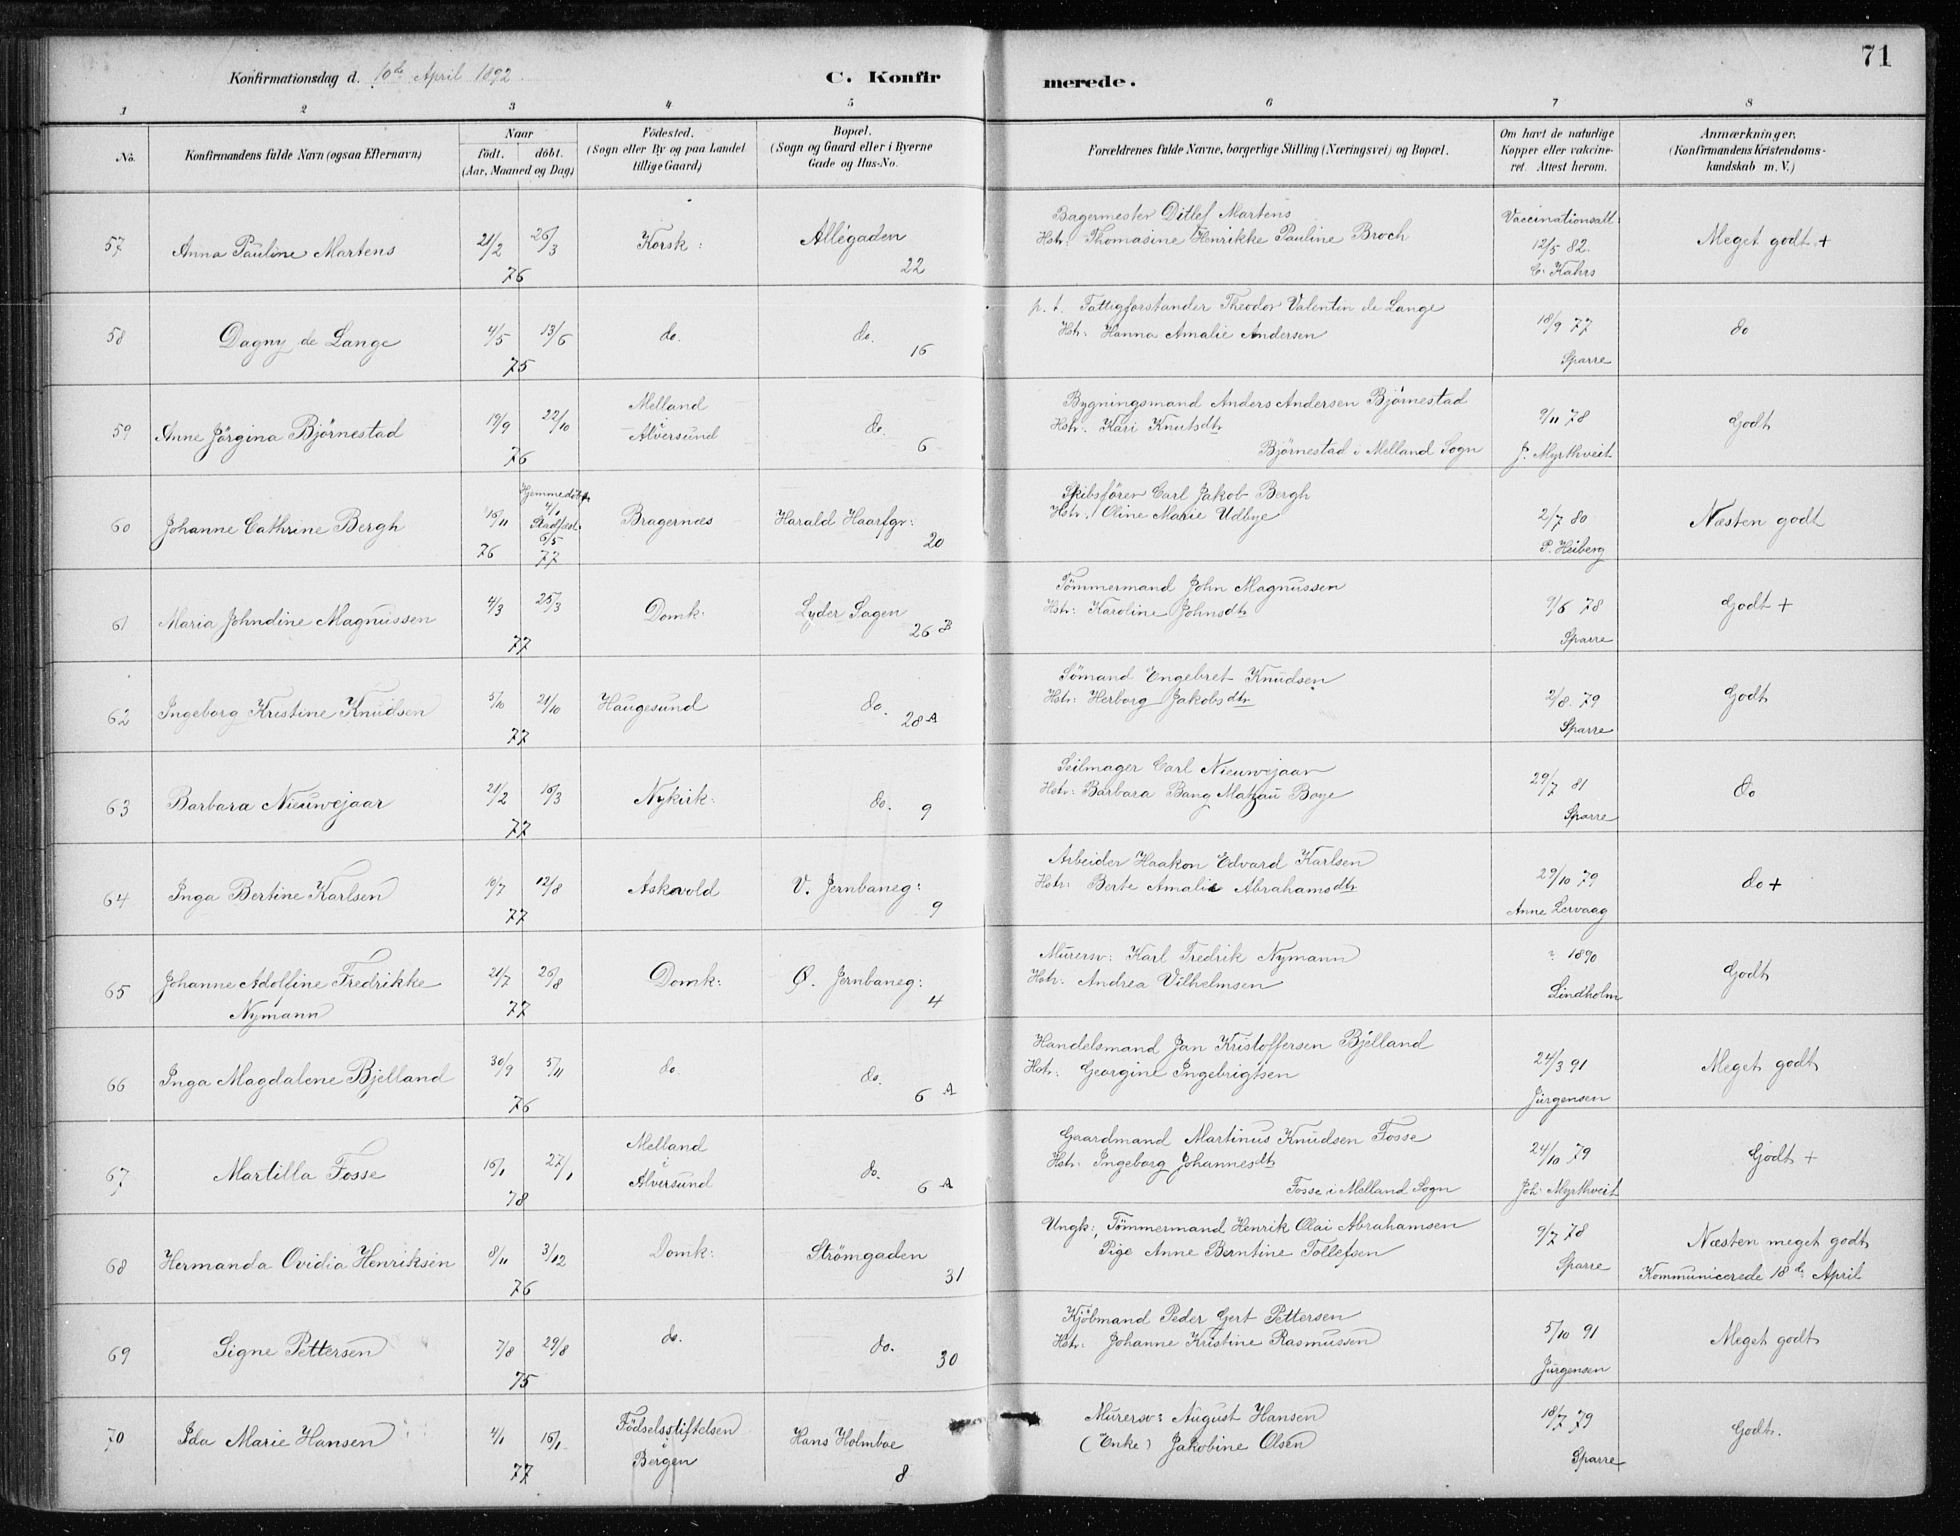 71
Konfirmationsdag d. 10de April 1892
C. Konfirmerede.
1 2 3 4 5 6 7 8
No. Konfirmandens fulde Navn (ogsaa Efternavn) Naar födt. döbt. (Aar, Maaned og Dag) Födested. (Sogn eller By og paa Landet tillige Gaard) Bopæl. (Sogn og Gaard eller i Byerne Gade og Hus-No. Forældrenes fulde Navne, borgerlige Stilling (Næringsvei) og Bopæl. Om havt de naturlige Kopper eller vaccineret. Attest herom. Anmærkninger. (Konfirmandens Kristendomskundskab m. V.)
57 Anna Pauline Martens 21/2 26/3 76 Korsk: Allégaden 22 Bagermester Ditlef Martens Hstr: Thomasine Henrikke Pauline Broch Vaccinationsatt: 12/5 82. C. Kahrs Meget godt +
58 Dagny de Lange 4/5 13/6 75 do. do. 16 p. t. Fattigforstander Theodor Valentin de Lange Hstr: Hanna Amalie Andersen 18/9 77 Sparre do
59 Anne Jörgina Bjørnestad 19/9 22/10 76 Melland Alversund do. 6 Bygningsmand Anders Andersen Bjørnestad Hstr: Kari Knutsdtr Bjørnestad i Melland Sogn 9/11 78 J. Myrthveit Godt
60 Johanne Cathrine Bergh 16/11 76 Hjemmedöbt 4/1 Stadfæst: 6/5 77 Bragernæs Harald Haarfgr: 20 Skibsfören Carl Jakob Bergh Hstr: Oline Marie Udbye 2/7 80 P. Heiberg Næsten godt
61 Maria Johndine Magnussen 4/3 25/3 77 Domk: Lyder Sagen 26 B Tömmermand John Magnussen Hstr: Karoline Johnsdtr 9/6 78 Sparre Godt +
62 Ingeborg Kristine Knudsen 5/10 21/10 77 Haugesund do. 28 A Sömand Engebret Knudsen Hstr: Herborg Jakobsdtr 2/8 79 Sparre Godt
63 Barbara Nieuwejaar 21/2 16/3 77 Nykirk: do. 9 Seilmager Carl Nieuwejaar Hstr: Barbara Bang Matzau Boye 29/7 81 Sparre do
64 Inga Bertine Karlsen 10/7 12/8 77 Askevold V. Jernbaneg: 9 Arbeider Haakon Edvard Karlsen Hstr: Berte Amalie Abrahamsdtr 29/10 79 Anne Lervaag do +
65 Johanne Adolfine Fredrikke Nymann 21/7 26/8 77 Domk: Ø. Jernbaneg: 4 Murersv: Karl Fredrik Nymann Hstr: Andrea Vilhelmsen ? 1890 Lindholm Godt
66 Inga Magdalene Bjelland 30/9 5/11 76 do do. 6 A Handelsmand Jan Kristoffersen Bjelland Hstr: Georgine Ingebrigtsen 24/3 91 Jürgensen Meget godt
67 Martilla Fosse 16/1 27/1 78 Melland i Alversund do. 6 A Gaardmand Martinus Knudsen Fosse Hstr: Ingeborg Johannesdtr Fosse i Melland Sogn 24/10 79 Joh: Myrthveit Godt +
68 Hermanda Ovidia Henriksen 8/11 3/12 76 Domk: Strömgaden 31 Ungk: Tömmermand Henrik Olai Abrahamsen Pige Anne Berntine Tollefsen 9/7 78 Sparre Næsten meget godt Kommunicerede 18de April
69 Signe Pettersen 7/8 29/8 75 do. do. 30 Kjöbmand Peder Gert Pettersen Hstr: Johanne Kristine Rasmussen 5/10 91 Jürgensen Meget godt
70 Ida Marie Hansen 4/1 16/1 77 Födselsstiftelsen i Bergen Hans Holmboe 8 Murersv: August Hansen (Enke) Jakobine Olsen 18/7 79 Sparre Godt.